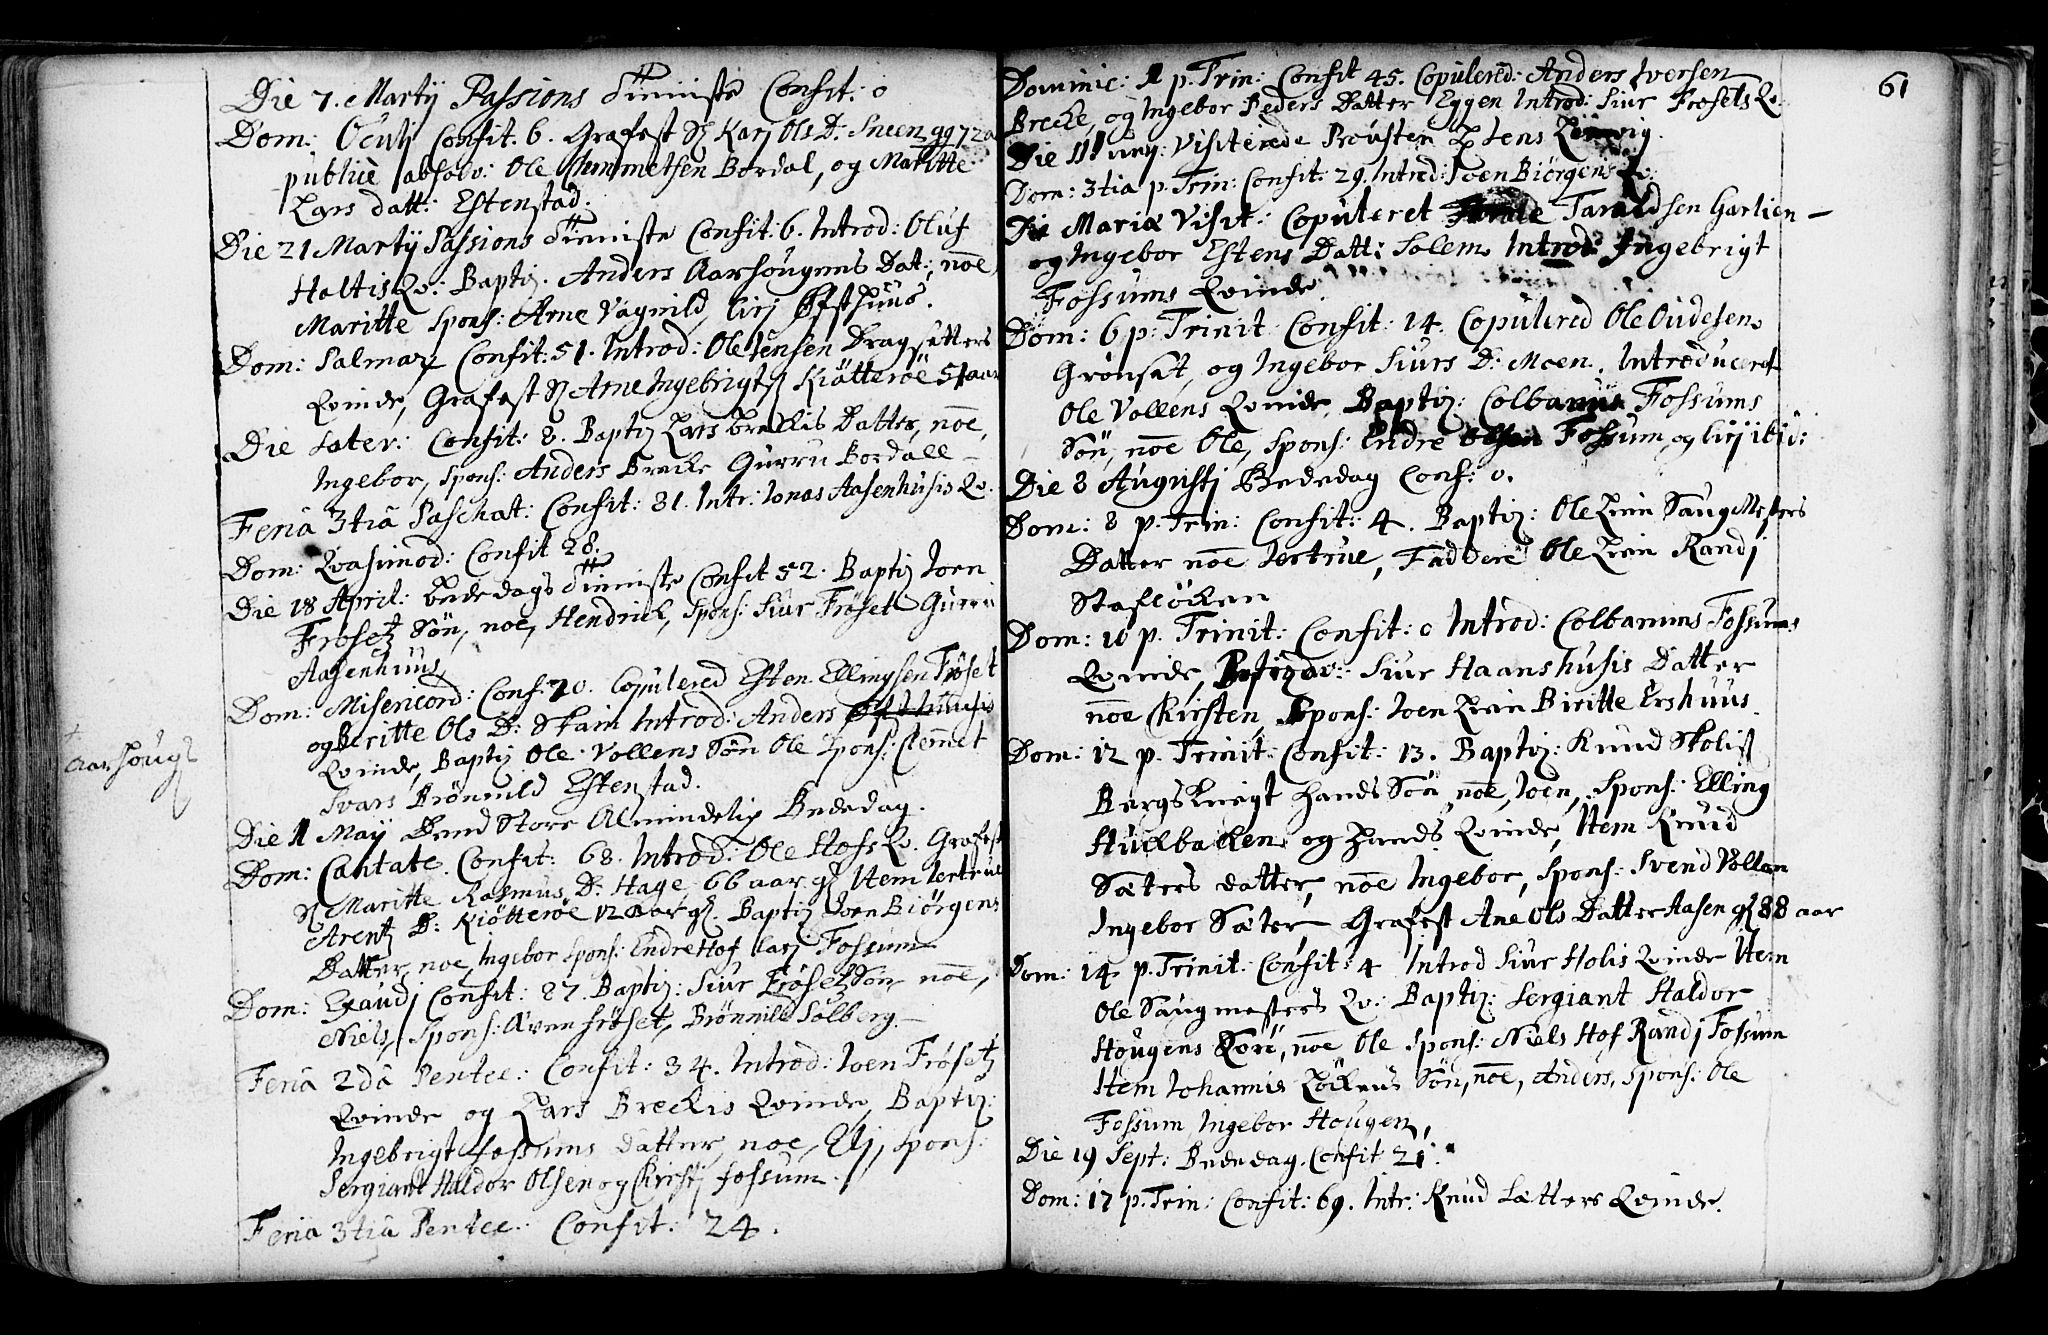 Die 7. Martÿ Passions Tienniste Confit: 0
Dom: Oculi Confit. 6. Grafest S. Karj Ols D: Sneen gg 72 a
publicè absolv: Ole Chimmetsen Bordal, og Maritte
Lars datt: Estenstad.
Die 21 Martÿ Passions Tienniste Confit: 6. Introd: Oluf
Holtis Qv: Baptiz. Anders Aarhougens Dat:, noē
Maritte spons: Arne Vagnild, Cirj Østhuus.
Dom: Palmar. Confit: 51. Introd: Ole Jensen Dragsetters
Qvinde, Grafest S. Arne Ingebrigts. Kiötteröe 51 aar
Die Later: Confit: 8. Baptiz Lars Breckis Datter, noē,
Ingebor, spons: Anders Brecke Gurru Bordall
Feriâ 3tiâ Paschat: Confit: 81. Intr: Jonas Aasenhusis Qv.
Dom: Qvasimod: Confit 28.
Die 18 April: Bededags Tienniste Confit 52. Baptiz Joen
Frösetz Sön, noe, Hendrick, spons: Siur Fröset Gurru
Aasenhuus,
Dom: Misericord: Conf: 70. Copulered Esten Ellingsen Fröset
og Beritte Ols D: Skain Introd: Anders Østhuusis
+
Aarhougs
Qvinde, Baptiz Ole Vollens Sön Ole Spons: Clemet
Svars Brönnild Estenstad.
Die 11 Maÿ Dend Store Almindelig Bededag.
Dom: Cantate. Confit: 68. Introd: Ole Hofs Qv. Grafest
S. Maritte Rasmus D: Hage 66 aar gl. Item Jertrue
Arentz D: Kiötteröe 12 aar gl. Baptiz Joen Biörgens
Datter, noe, Ingebor spons: Endre Hof Carj Fossum
Dom: Exaudj Confit: 87. Baptiz: Siur Frösetz Sön noē,
Niels, spons: Even Fröset, Brönnild Solberg.
Feriâ 2dâ Pentec: Confit: 34. Introd: Joen Frösetz
Qvinde og Lars Breckis Qvinde, Baptiz:
Ingebrigt Fossums datter, noe, Elj, spons:
Sergiant Haldor Olsen og Chirstj Fossum.
Feria 3tiâ Pentec: Confit: 24.
61
Dominic: 1 p. Trin: Confit 45. Copulered: Anders Iversen
Brecke, og Ingebor Peders Datter Eggen Introd: Siur Frosets Qv.
Die 11 Junÿ: Visiterede Proustens
Dom: 3tia p. Trin: Confit: 29. Introd: Joen Biörgens Qv:
Die Mariæ Visit: Copuleret Taraldsen Garlien
og Ingebor Estens Datt: Solem Introd: Ingebrigt
Fossums Qvinde.
Dom: 6 p: Trinit Confit: 14. Copulered Ole Oudesen
Grönset, og Ingebor Siurs D: Moen. Introduceret
Ole Vollens Qvinde, Baptiz: Colbanus Fossums
Sön, noē Ole, spons: Endre Olsen Fossum, og Cirj ibid:
Die 8 Augustj Bededag Conf: 0.
Dom: 8 p. Trin: Confit: 4. Baptiz: Ole Lien Saug Mesters
Datter noē Jertrue, Faddere Ole Lien Randj
Stafløcken
Dom: 10 p. Trinit: Confit: 0 Introd: Colbanuns Fossums
Qvinde Siur Haanshusis Datter
noē Chirsten, Spons: Joen Lien Biritte Ershuus.
Dom: 12 p. Trinit: Confit: 13. Baptiz: Knud Skolis
Bergsknegt hands Sön noē, Joen, spons: Elling
Huckbacken og hands Qvinde, Item Knud
Sæters datter, noē Ingebor, spons: Svend Vollan
Ingebor Sæter, Grafest Ane Ols Datter Aasen gl 88 aar
Dom: 14 p. Trinit: Confit: 4 Introd Siur Holis Qvinde Item
Ole Saugmesters Qv: Baptiz: Sergiant Haldor
Hougens Sön, noē Ole spons: Niels Hof Randj Fossum
Item Johannis Löckens Sön, noē, Anders, spons: Ole
Fossum, Ingebor Hougen,
Die 19 Sept: Bededag. Confit 21.
Dom: 17 p. Trin: Confit: 69. Intr: Knud Sætters Qvinde.